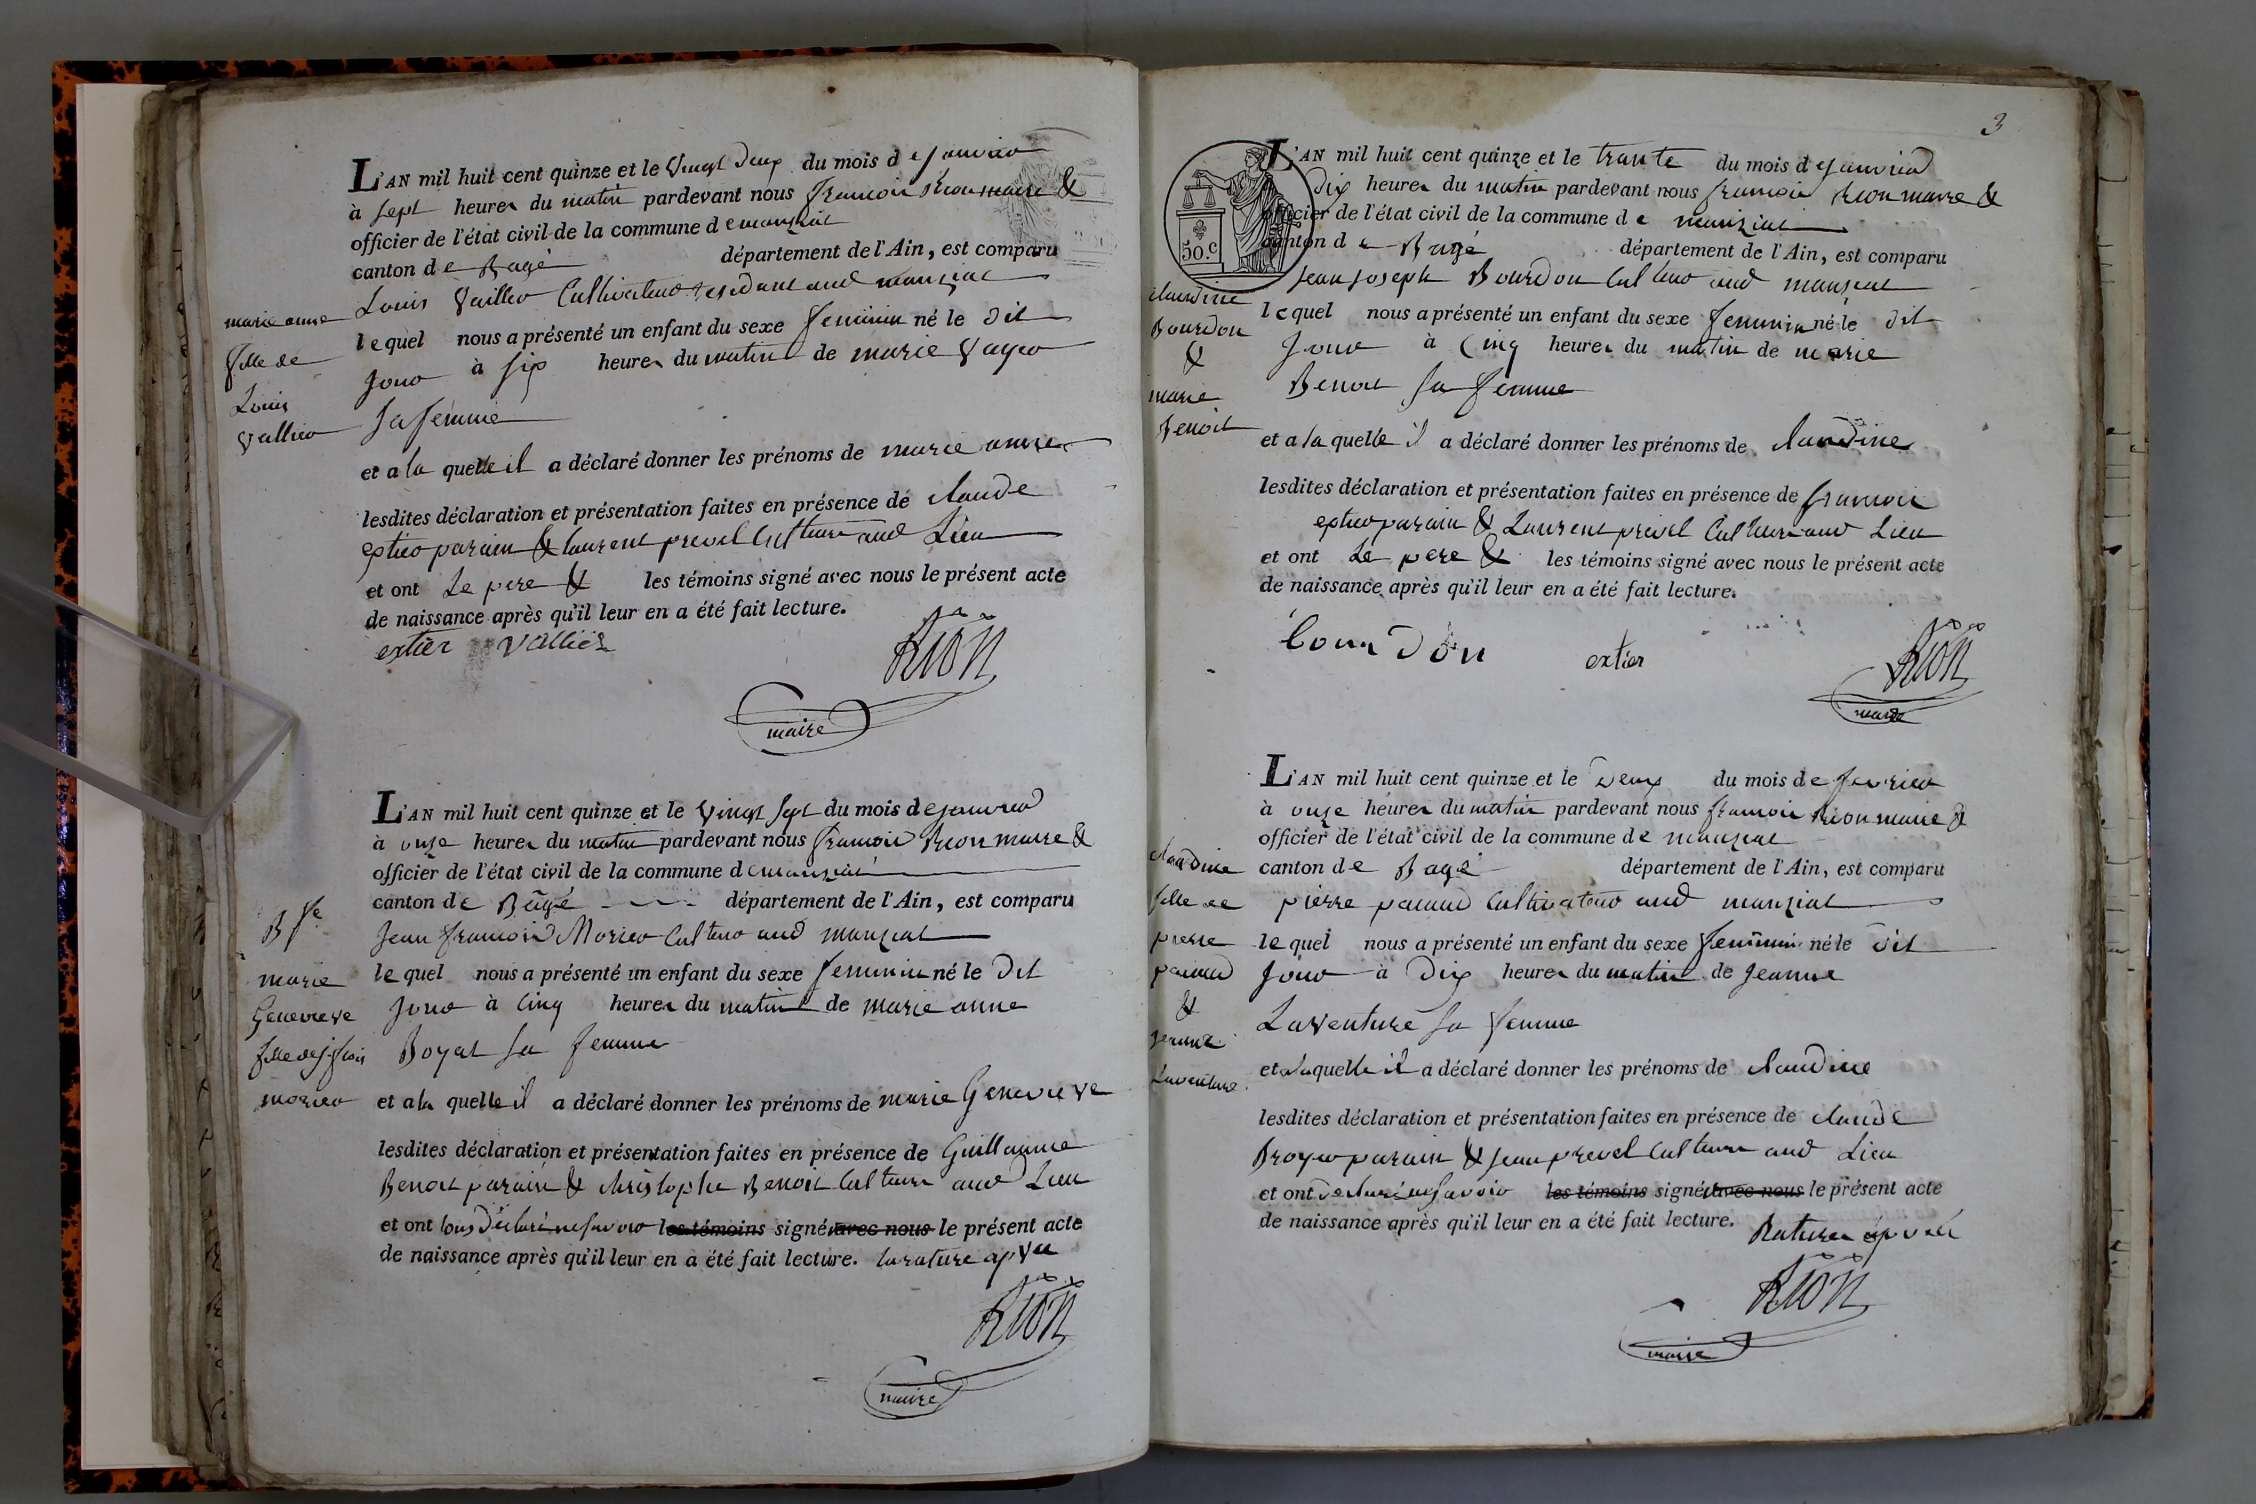 L'AN mil huit cent quinze et le vingt deux du mois de janvier
à sept heures du matin pardevant nous francois Rion maire &
officier de l'état civil de la commune de manziat
canton de Bagé département de l'Ain, est comparu
Louis Vaillier Cultivateur residant aud manziat
lequel nous a présenté un enfant du sexe feminin né le dit
jour à six heures du matin de marie
sa femme
et a la quelle il a déclaré donner les prénoms de marie anne
lesdites déclaration et présentation faites en présence de claude
extier parain & laurent prevel Cultteurs aud Lieu
et ont Le pere & les témoins signé avec nous le présent acte
de naissance après qu'il leur en a été fait lecture.
extier vallier Rion
maire
marie anne
fille de
Louis
vallier
L'AN mil huit cent quinze et le vingt sept du mois de janvier
à onze heures du matin pardevant nous francois Rion maire &
officier de l'état civil de la commune de manziat
canton de Bagé département de l'Ain, est comparu
jean francois Morier Cultteur aud manziat
lequel nous a présenté un enfant du sexe feminin né le dit
jour à cinq heures du matin de marie anne
Boyat sa femme
et a la quelle il a déclaré donner les prénoms de marie Genevieve
lesdites déclaration et présentation faites en présence de Guillaume
Benoit parain & christophe Benoit Cultteurs aud Lieu
et ont tous déclaré ne savoir les témoins signé avec nous le présent acte
de naissance après qu'il leur en a été fait lecture. la rature apvée
Rion
maire
marie
Genevieve
fille de j fcois
morier
3
50. c
L'AN mil huit cent quinze et le trante du mois de janvier
dix heures du matin pardevant nous francois Rion maire &
officier de l'état civil de la commune de manziat
canton de Bagé département de l'Ain, est comparu
jean joseph Bourdon Cultteur aud manziat
lequel nous a présenté un enfant du sexe feminin né le dit
jour à cinq heures du matin de marie
Benoit sa femme
et a la quelle il a déclaré donner les prénoms de claudine
lesdites déclaration et présentation faites en présence de francois
extier parain & Laurent prevel Cultteurs aud Lieu
et ont Le pere & les témoins signé avec nous le présent acte
de naissance après qu'il leur en a été fait lecture.
bourdon extier Rion
maire
claudine
Bourdon
&
marie
Benoit
L'AN mil huit cent quinze et le deux du mois de fevrier
à onze heures du matin pardevant nous francois Rion maire &
officier de l'état civil de la commune de manziat
canton de Bagé département de l'Ain, est comparu
pierre panaud Cultivateur aud manziat
lequel nous a présenté un enfant du sexe feminin né le dit
jour à dix heures du matin de jeanne
Laventure sa femme
et a laquelle il a déclaré donner les prénoms de claudine
lesdites déclaration et présentation faites en présence de claude
Broyer parain & jean prevel Cultteurs aud Lieu
et ont declaré ne savoir les témoins signé avec nous le présent acte
de naissance après qu'il leur en a été fait lecture. Ratures
Rion
maire
claudine
fille de
pierre
panaud
&
jeanne
Laventure